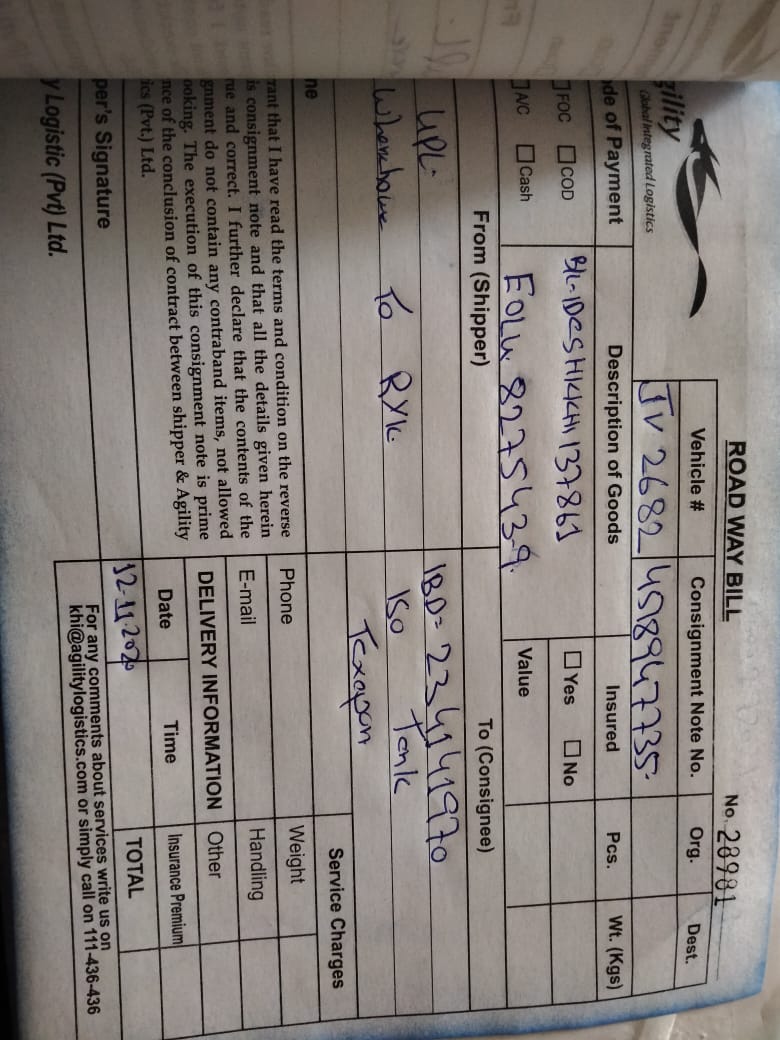 ROAD WAY BILL
No. 28981
gility
Global Integrated Logistics
Vehicle #
Consignment Note No.
Org.
Dest.
JV 2682
4518947735
de of Payment
Description of Goods
Insured
Pcs.
Wt. (Kgs)
FOC
COD
137861
Yes
No
A/C
Cash
EOLU 827543-9.
Value
From (Shipper)
To (Consignee)
UPL
IBD= 234141970
Warehouse To RYK
ISO Tank
Texapon
Service Charges
ne
Phone
Weight
rant that I have read the terms and condition on the reverse
is consignment note and that all the details given herein
rue and correct. I further declare that the contents of the
gnment do not contain any contraband items, not allowed
ooking. The execution of this consignment note is prime
nce of the conclusion of contract between shipper & Agility
ics (Pvt.) Ltd.
E-mail
Handling
DELIVERY INFORMATION
Other
Date
Time
Insurance Premium
12-11-2020
TOTAL
per's Signature
For any comments about services write us on
khi@agilitylogistics.com or simply call on 111-436-436
y Logistic (Pvt) Ltd.